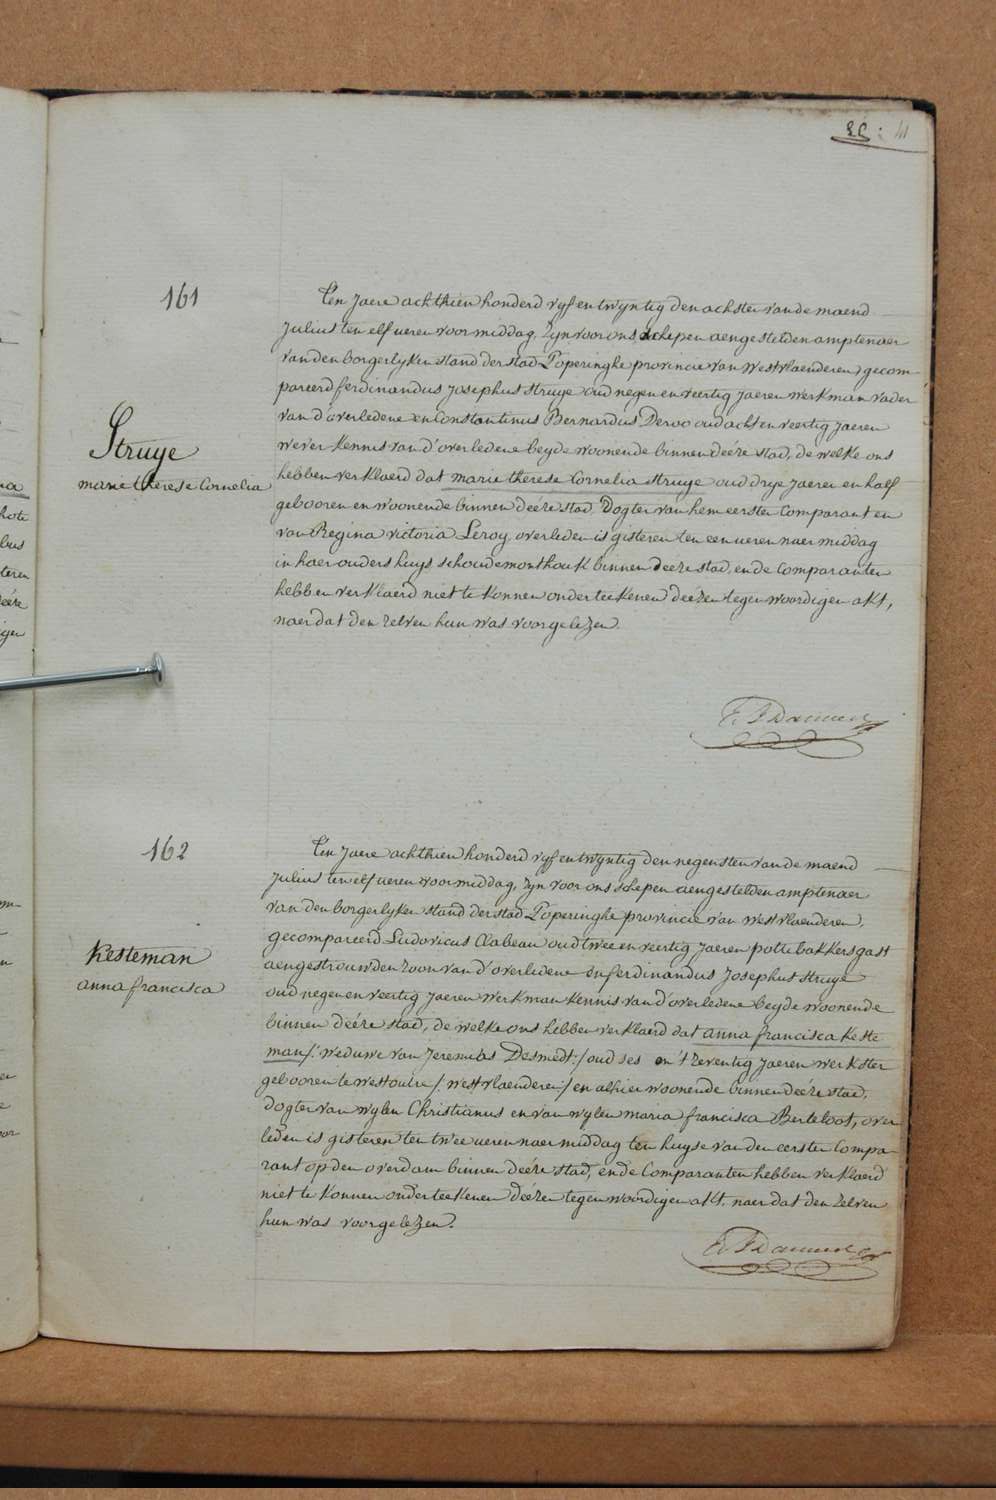 161
Struye
marie therese Cornelia
Ten Jaere achthien honderd vyf en twyntig den achsten van de maend
Julius ten elf ueren voormiddag, Zyn voor ons schepen aengestelden amptenaer
van den borgerlyken stand der stad Poperinghe provincie van Westvlaenderen, gecom-
pareerd ferdinandus Josephus Struye oud negen en veertig jaeren werkman vader
van d'overledene en Constantinus Bernardus Deroo oud acht en veertig jaeren
wever kennis van d'overledene beyde woonende binnen deéze stad, de welke ons
hebben verklaerd dat marie therese Cornelia Struye oud drye jaeren en half
gebooren en woonende binnen deéze stad, Dogter van hem eersten Comparant en
van Regina victoria Leroy, overleden is gisteren ten een ueren naermiddag
in haer ouders huys schoudemonthouk binnen deeze stad, en de Comparanten
hebben verklaerd niet te konnen onderteekenen deezen tegenwoordigen akt,
naer dat den zelven hun was voorgelezen.
162
Kesteman
anna francisca
Ten Jaere achthien honderd vyf en twyntig den negensten van de maend
Julius ten elf ueren voormiddag, Zyn voor ons schepen aengestelden amptenaer
van den borgerlyken stand der stad Poperinghe provincie van Westvlaenderen,
gecompareerd Ludovicus Clabeau oud twee en veertig jaeren pottebakkersgast
aengetrouwden zoon van d'overledene en ferdinandus Josephus Struye
oud negen en veertig jaeren werkman kennis van d'overledene beyde woonende
binnen deéze stad, de welke ons hebben verklaerd dat anna francisca Keste
man /: weduwe van Jeremias Desmedt :/ oud ses en 't zeventig jaeren werkster
gebooren te Westoutre /: westvlaenderen :/ en alhier woonende binnen deéze stad,
dogter van wylen Christianus en van wylen maria francisca Berteloot, over
leden is gisteren ten twee ueren naermiddag ten huyse van den eersten Compa-
rant op den overdam binnen deéze stad, en de Comparanten hebben verklaerd
niet te konnen onderteekenen deézen tegenwoordigen akt, naer dat den zelven
hun was voorgelezen.